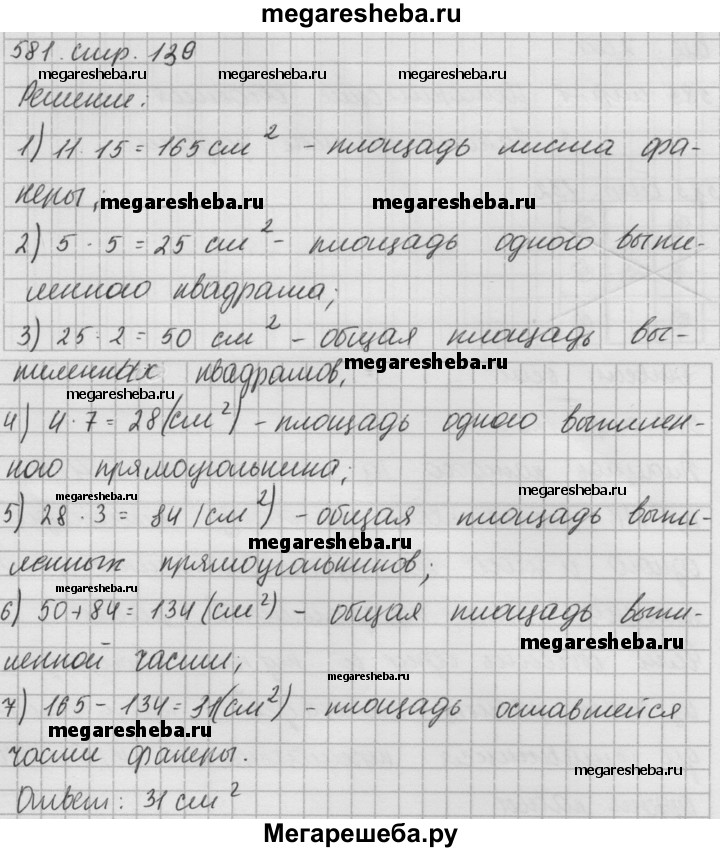 megaresheba.ru
581. стр. 139
megaresheba.ru megaresheba.ru megaresheba.ru
Решение:
1) 11·15 = 165 см² - площадь листа фа-
неры;
megaresheba.ru megaresheba.ru
2) 5 · 5 = 25 см² - площадь одного выпи-
ленного квадрата;
3) 25 · 2 = 50 см² - общая площадь вы-
пиленных квадратов;
megaresheba.ru
megaresheba.ru
4) 4 · 7 = 28 (см²) - площадь одного выпилен-
ного прямоугольника;
megaresheba.ru megaresheba.ru
5) 28 · 3 = 84 (см²) - общая площадь выпи-
megaresheba.ru
ленных прямоугольников;
megaresheba.ru
6) 50 + 84 = 134 (см²) - общая площадь выпи-
megaresheba.ru
ленной части;
megaresheba.ru
7) 165 - 134 = 31 (см²) - площадь оставшейся
megaresheba.ru
части фанеры.
megaresheba.ru
Ответ: 31 см²
Мегарешеба.ру